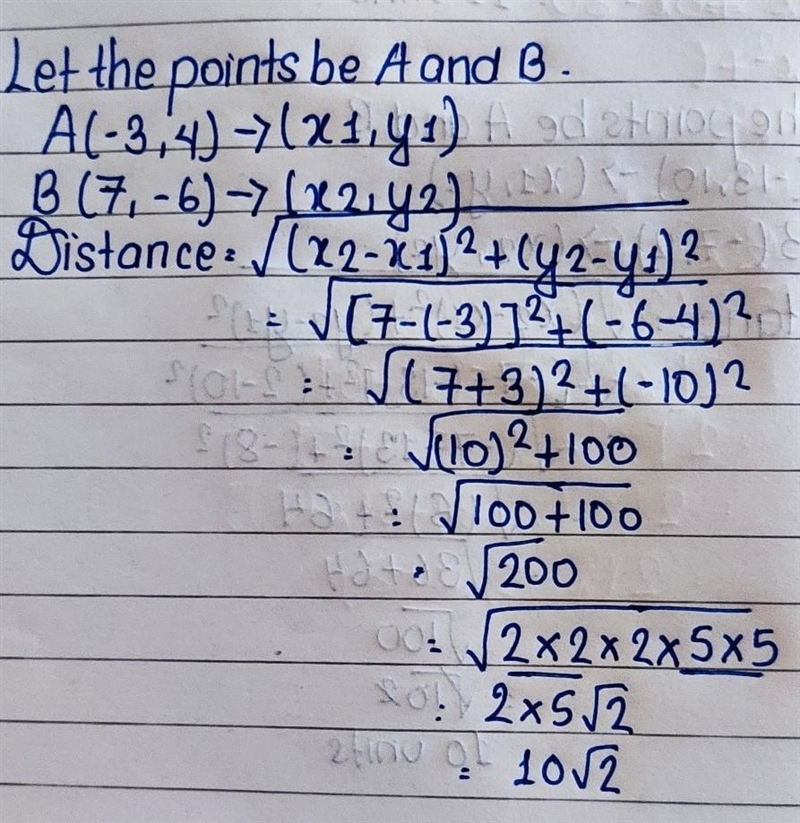 Let the points be A and B.
A(-3,4)→(x1,y1)
B(7,-6)→(x2,y2)
Distance=√(x2-x1)²+(y2-y1)²
=√[7-(-3)]²+(-6-4)²
=√(7+3)²+(-10)²
=√(10)²+100
=√100+100
=√200
=√2×2×2×5×5
=2×5√2
=10√2